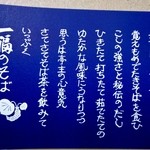 覚えもめでたきそばを食ひ
こしの強さと秘伝のだし
ひきたて打ちたて茹でたての
ゆたかな風味にうなりつつ
思うは亭主の心意気
さてさてそば茶を飲みて
いっぷく
一福のそば